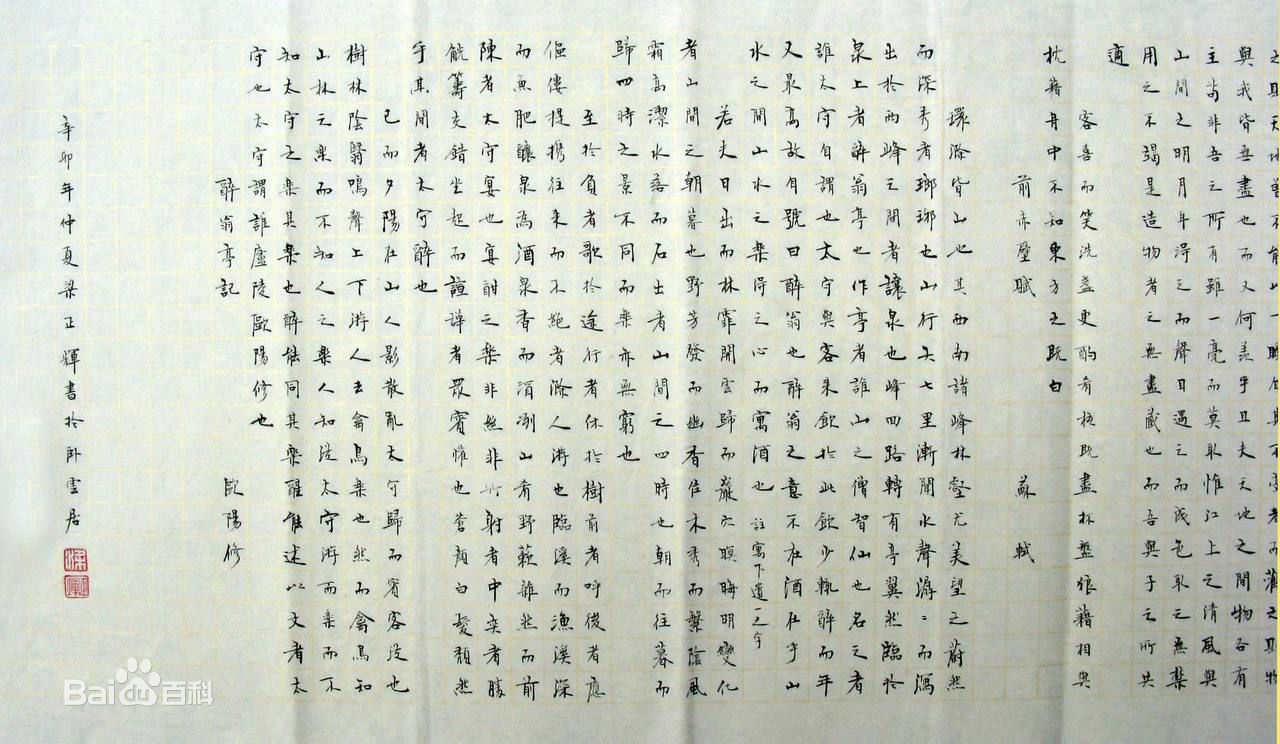 之則天地曾不能以一瞬自其不變者而觀之則物
與我皆無盡也而又何羨乎且夫天地之間物各有
主苟非吾之所有雖一毫而莫取惟江上之清風與
山間之明月耳得之而聲目遇之而成色取之無禁
用之不竭是造物者之無盡藏也而吾與子之所共
適
客喜而笑洗盞更酌肴核既盡杯盤狼藉相與
枕藉舟中不知東方之既白
前赤壁賦 蘇軾
環滁皆山也其西南諸峰林壑尤美望之蔚然
而深秀者瑯琊也山行六七里漸聞水聲潺〻而瀉
出於兩峰之間者讓泉也峰回路轉有亭翼然臨於
泉上者醉翁亭也作亭者誰山之僧智仙也名之者
誰太守自謂也太守與客來飲於此飲少輒醉而年
又最高故自號曰醉翁也醉翁之意不在酒在乎山
水之間山水之樂得之心而寓酒也 註寓下遺一之字
若夫日出而林霏開雲歸而巖穴暝晦明變化
者山間之朝暮也野芳發而幽香佳木秀而繁陰風
霜高潔水落而石出者山間之四時也朝而往暮而
歸四時之景不同而樂亦無窮也
至於負者歌於途行者休於樹前者呼後者應
傴僂提攜往來而不絕者滁人游也臨溪而漁溪深
而魚肥釀泉為酒泉香而酒洌山肴野蔌雜然而前
陳者太守宴也宴酣之樂非絲非竹射者中奕者勝
觥籌交錯坐起而諠譁者眾賓懽也蒼顏白髮頹然
乎其間者太守醉也
已而夕陽在山人影散亂太守歸而賓客從也
樹林陰翳鳴聲上下游人去禽鳥樂也然而禽鳥知
山林之樂而不知人之樂人知從太守游而樂而不
知太守之樂其樂也醉能同其樂醒能述以文者太
守也太守謂誰廬陵歐陽修也
醉翁亭記 歐陽修
辛卯年仲夏梁正輝書於卧雲居
Bai 百科